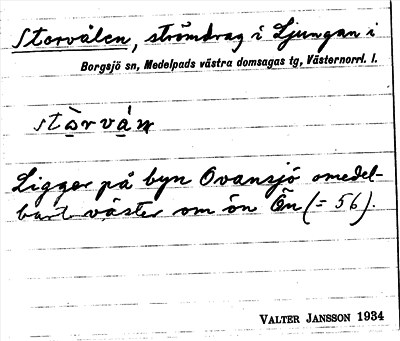 Storvålen, strömdrag i Ljungan i
Borgsjö sn, Medelpads västra domsagas tg, Västernorrl. l.
stò̱rvá̱n
Ligger på byn Ovansjö omedel-
bart väster om ön Ön (= 56).
VALTER JANSSON 1934